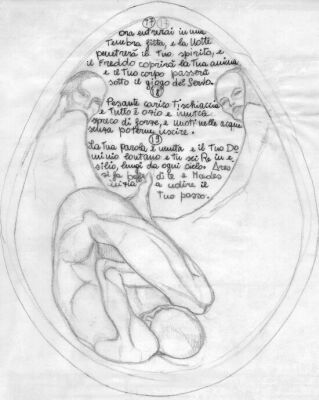 17
ora entrerai in una
Tenebra fitta, e la Notte
penetrerà il Tuo spirito, e
il Freddo coprirà la Tua anima,
e il Tuo corpo passerà
sotto il giogo del Servo.
18
Pesante carico Ti schiaccia
e Tutto è ozio e
spreco di forze, e nuoti nelle acque
senza poterne uscire.
19
La Tua parola è muta e il Tuo Do
minio lontano e Tu sei Re in e
silio, lungi da ogni cielo. Ares
si fa di te e Hades
a udire il
Tuo passo.